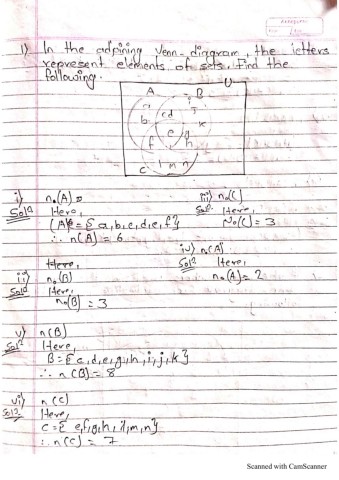 1) In the adjoining venn-diagram, the letters
represent elements of sets. Find the
following.
U
A B
a i
b cd j
k
e g
f h
l m n
C
i) n(A)
Sol^n Here,
A = { a, b, c, d, e, f }
∴ n(A) = 6
iii) n₀(C)
Sol^n Here,
n₀(C) = 3
iv) n₀(A)
Sol^n Here,
n₀(A) = 2
Here,
ii) n₀(B)
Sol^n Here,
n₀(B) = 3
v) n(B)
Sol^n Here,
B = { c, d, e, g, h, i, j, k }
∴ n(B) = 8
vi) n(C)
Sol^n Here,
C = { e, f, g, h, l, m, n }
∴ n(C) = 7
Scanned with CamScanner